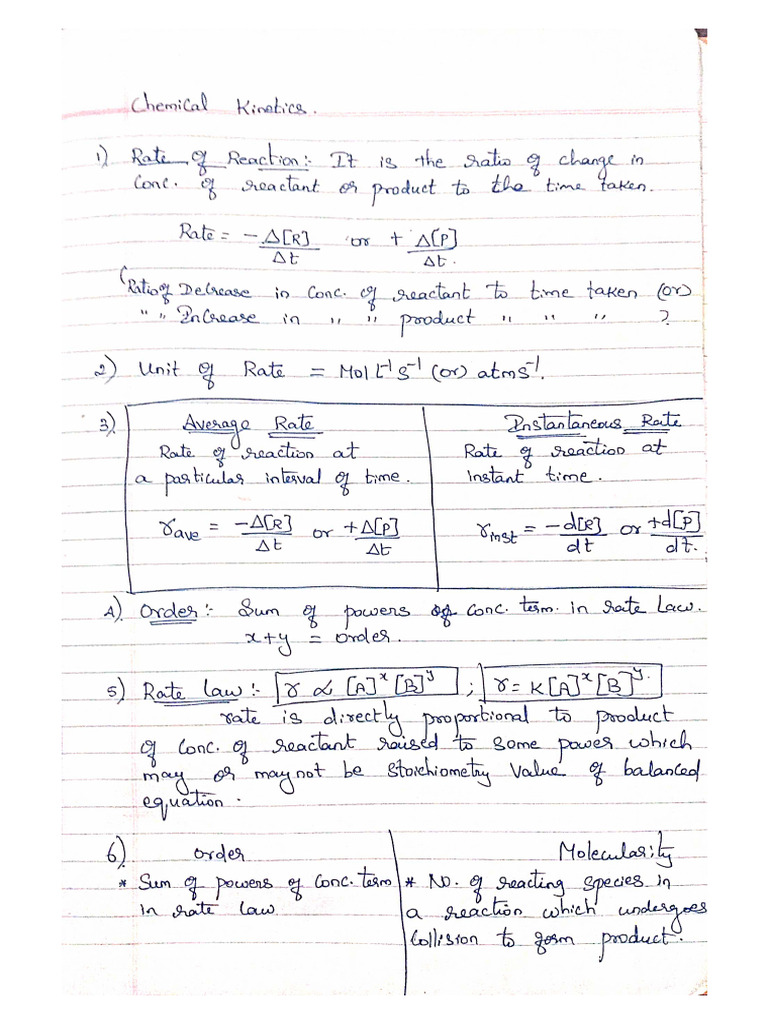 Chemical Kinetics.
1) Rate of Reaction:- It is the ratio of change in
Conc. of reactant or product to the time taken.
Rate = -Δ[R]/Δt or +Δ[P]/Δt.
(Ratio of Decrease in Conc. of reactant to time taken (or)
" " Increase in " " product " " " ?
2) Unit of Rate = Mol L⁻¹ S⁻¹ (or) atm s⁻¹.
3) Average Rate
Rate of reaction at
a particular interval of time.
r ave = -Δ[R]/Δt or +Δ[P]/Δt
Instantaneous Rate
Rate of reaction at
instant time.
r inst = -d[R]/dt or +d[P]/dt.
4) Order:- Sum of powers of conc. term in rate law.
x+y = order.
5) Rate law:- r ∝ [A]ˣ[B]ʸ ; r = K[A]ˣ[B]ʸ.
rate is directly proportional to product
of Conc. of reactant raised to some power which
may or may not be stoichiometry value of balanced
equation.
6) order
* Sum of powers of conc. term
in rate law.
Molecularity
* No. of reacting species in
a reaction which undergoes
Collision to form product.